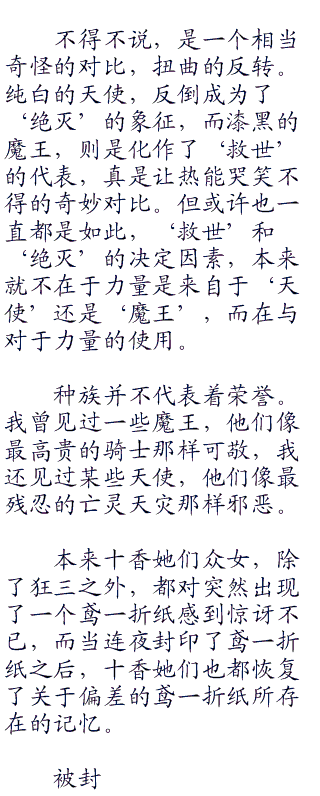 不得不说，是一个相当
奇怪的对比，扭曲的反转。
纯白的天使，反倒成为了
‘绝灭’的象征，而漆黑的
魔王，则是化作了‘救世’
的代表，真是让热能哭笑不
得的奇妙对比。但或许也一
直都是如此，‘救世’和
‘绝灭’的决定因素，本来
就不在于力量是来自于‘天
使’还是‘魔王’，而在与
对于力量的使用。
种族并不代表着荣誉。
我曾见过一些魔王，他们像
最高贵的骑士那样可敬，我
还见过某些天使，他们像最
残忍的亡灵天灾那样邪恶。
本来十香她们众女，除
了狂三之外，都对突然出现
了一个鸢一折纸感到惊讶不
已，而当连夜封印了鸢一折
纸之后，十香她们也都恢复
了关于偏差的鸢一折纸所存
在的记忆。
被封